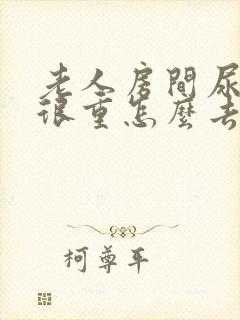 老人房間尿
很重怎麼去
柯尊平